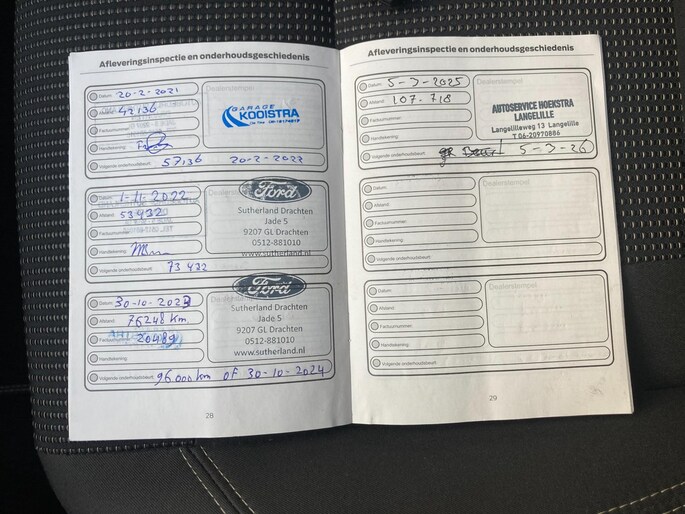 Afleveringsinspectie en onderhoudsgeschiedenis
Datum: 20-2-2021
Afstand: 42136
Factuurnummer:
Handtekening:
Volgende onderhoudsbeurt: 57136 20-2-2022
Dealerstempel
GARAGE
KOOISTRA
Datum: 1-11-2022
Afstand: 53932
Factuurnummer:
Handtekening:
Volgende onderhoudsbeurt: 73 932
Ford
Sutherland Drachten
Jade 5
9207 GL Drachten
0512-881010
www.sutherland.nl
Datum: 30-10-2023
Afstand: 76248 Km.
Factuurnummer: 20489
Handtekening:
Volgende onderhoudsbeurt: 96.000 km of 30-10-2024
Ford
Sutherland Drachten
Jade 5
9207 GL Drachten
0512-881010
www.sutherland.nl
28
Afleveringsinspectie en onderhoudsgeschiedenis
Datum: 5-3-2025
Afstand: 107-718
Factuurnummer:
Handtekening:
Volgende onderhoudsbeurt: 5-3-26
Dealerstempel
AUTOSERVICE HOEKSTRA
LANGELILLE
Langelilleweg 13 Langelille
T 06-20970886
Datum:
Afstand:
Factuurnummer:
Handtekening:
Volgende onderhoudsbeurt:
Dealerstempel
Datum:
Afstand:
Factuurnummer:
Handtekening:
Volgende onderhoudsbeurt:
Dealerstempel
29